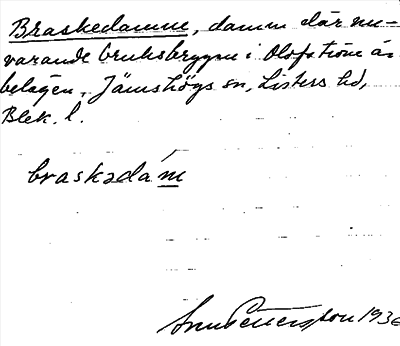 Braskedamm, damm där nu-
varande bruksbryggn i Olofström är
belägen. Jämshögs sn, Listers hd,
Blek. l.
braskədám
Pettersson 1936